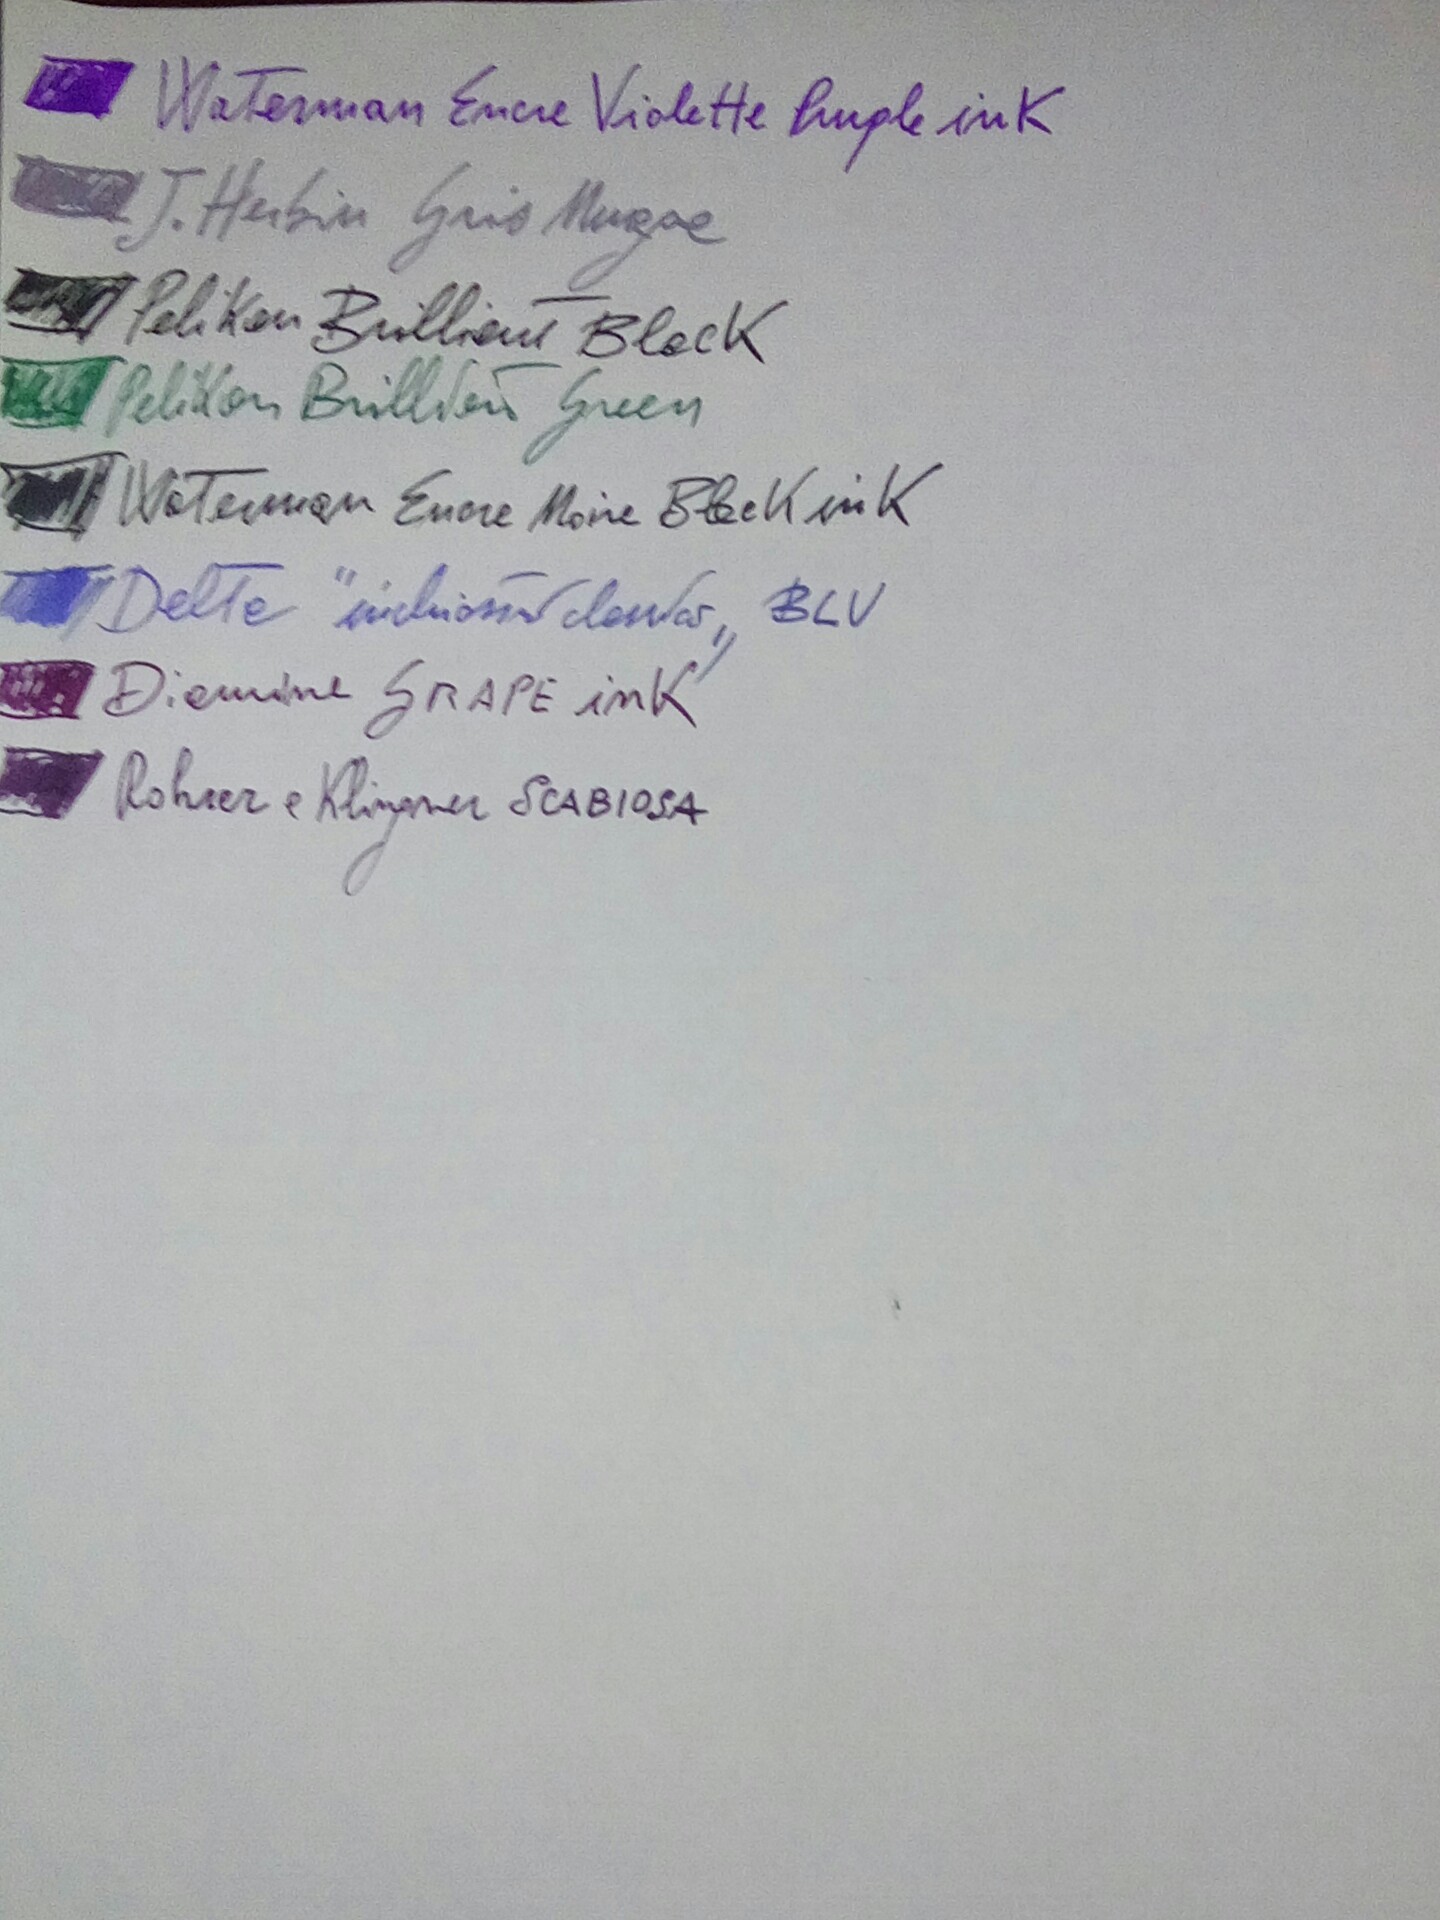 Waterman Encre Violette Purple ink
J. Herbin Gris Nuage
Pelikan Brilliant Black
Pelikan Brilliant Green
Waterman Encre Noire Black ink
Delta "inchiostro classico" BLU
Diamine GRAPE ink
Rohrer e Klingner SCABIOSA